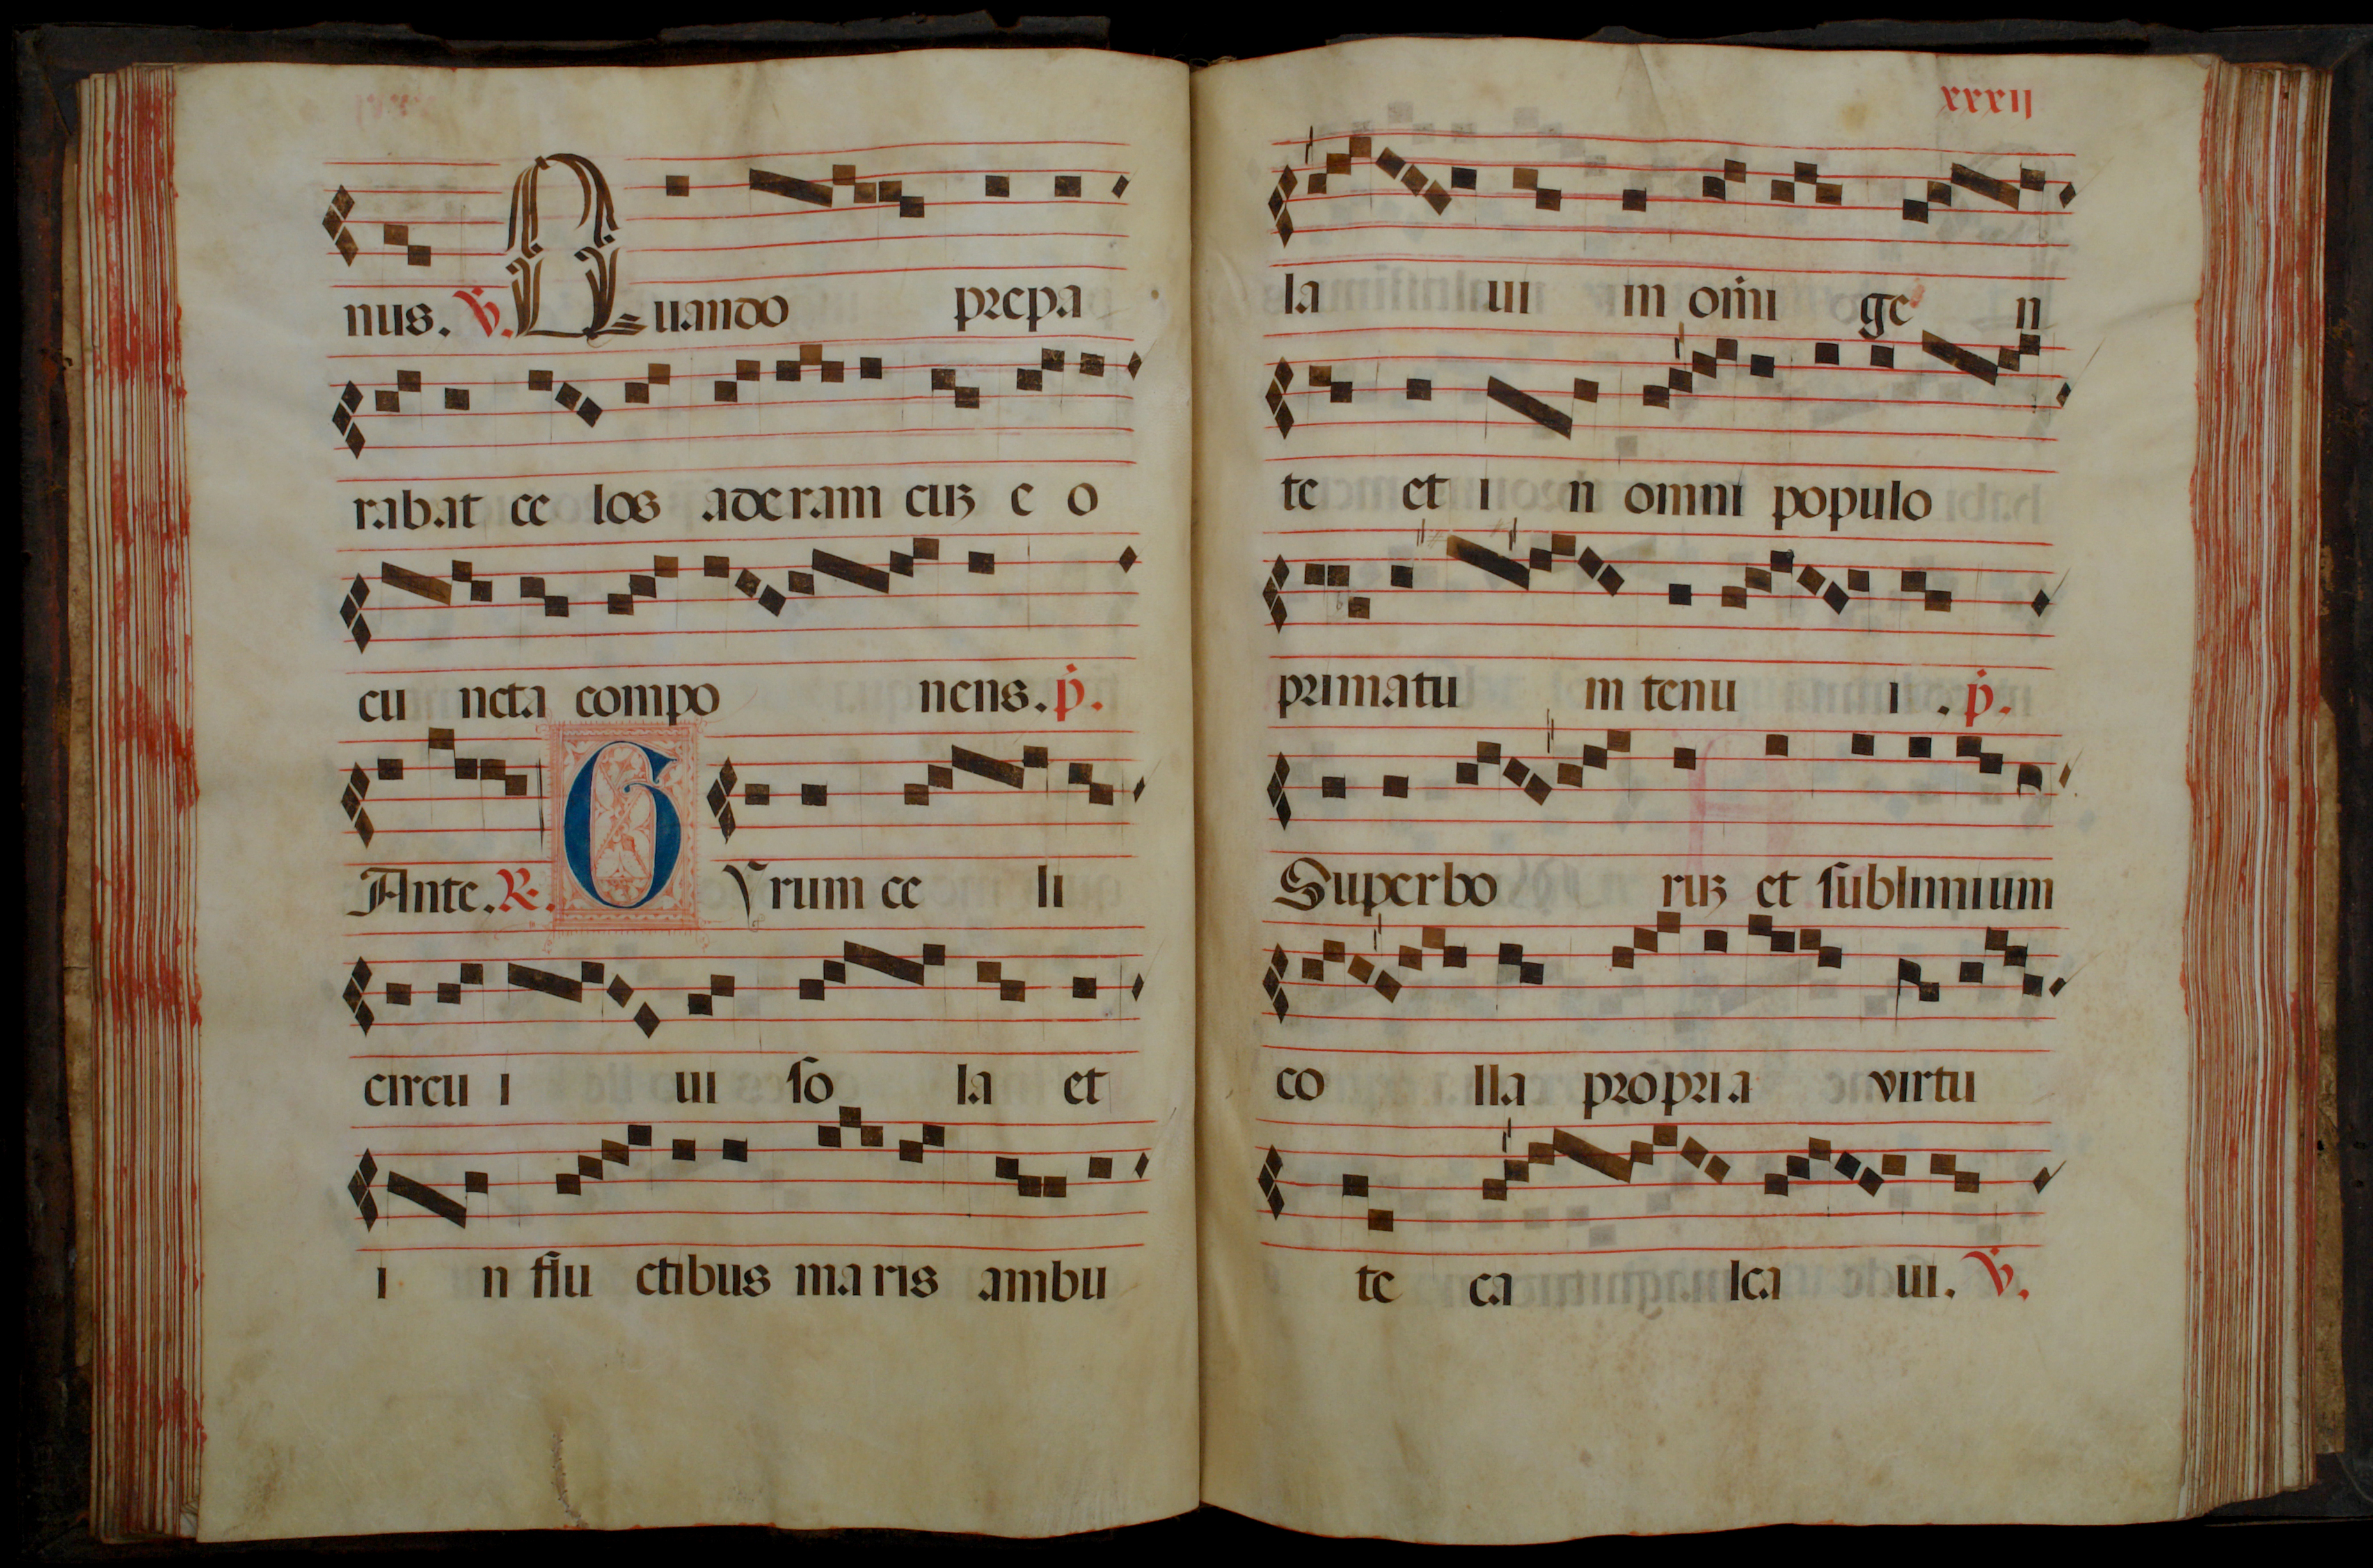 nus. ꝟ. Quando prepa
rabat ce los aderam cuꝫ e o
cu ncta compo nens. p̄.
Ante. R. GYrum ce li
circu i ui so la et
i n flu ctibus maris ambu
xxxij
la ui in om̄i ge n
te et i n omni populo
primatu m tenu i . p̄.
Superbo ruꝫ et sublimium
co lla propria virtu
te ca lca ui. ꝟ.